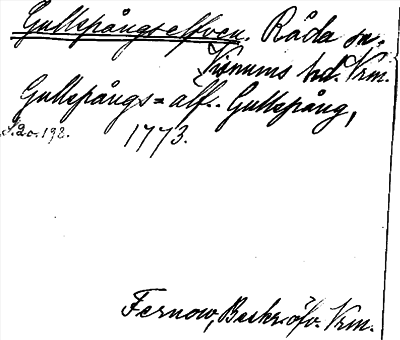 Gullspångselfven. Råda sn.
Visnums hd. Vrm.
Gullspångs=älf. Gullspång,
S. 20. 192. 1773.
Fernow, Beskr. öfv. Vrm.